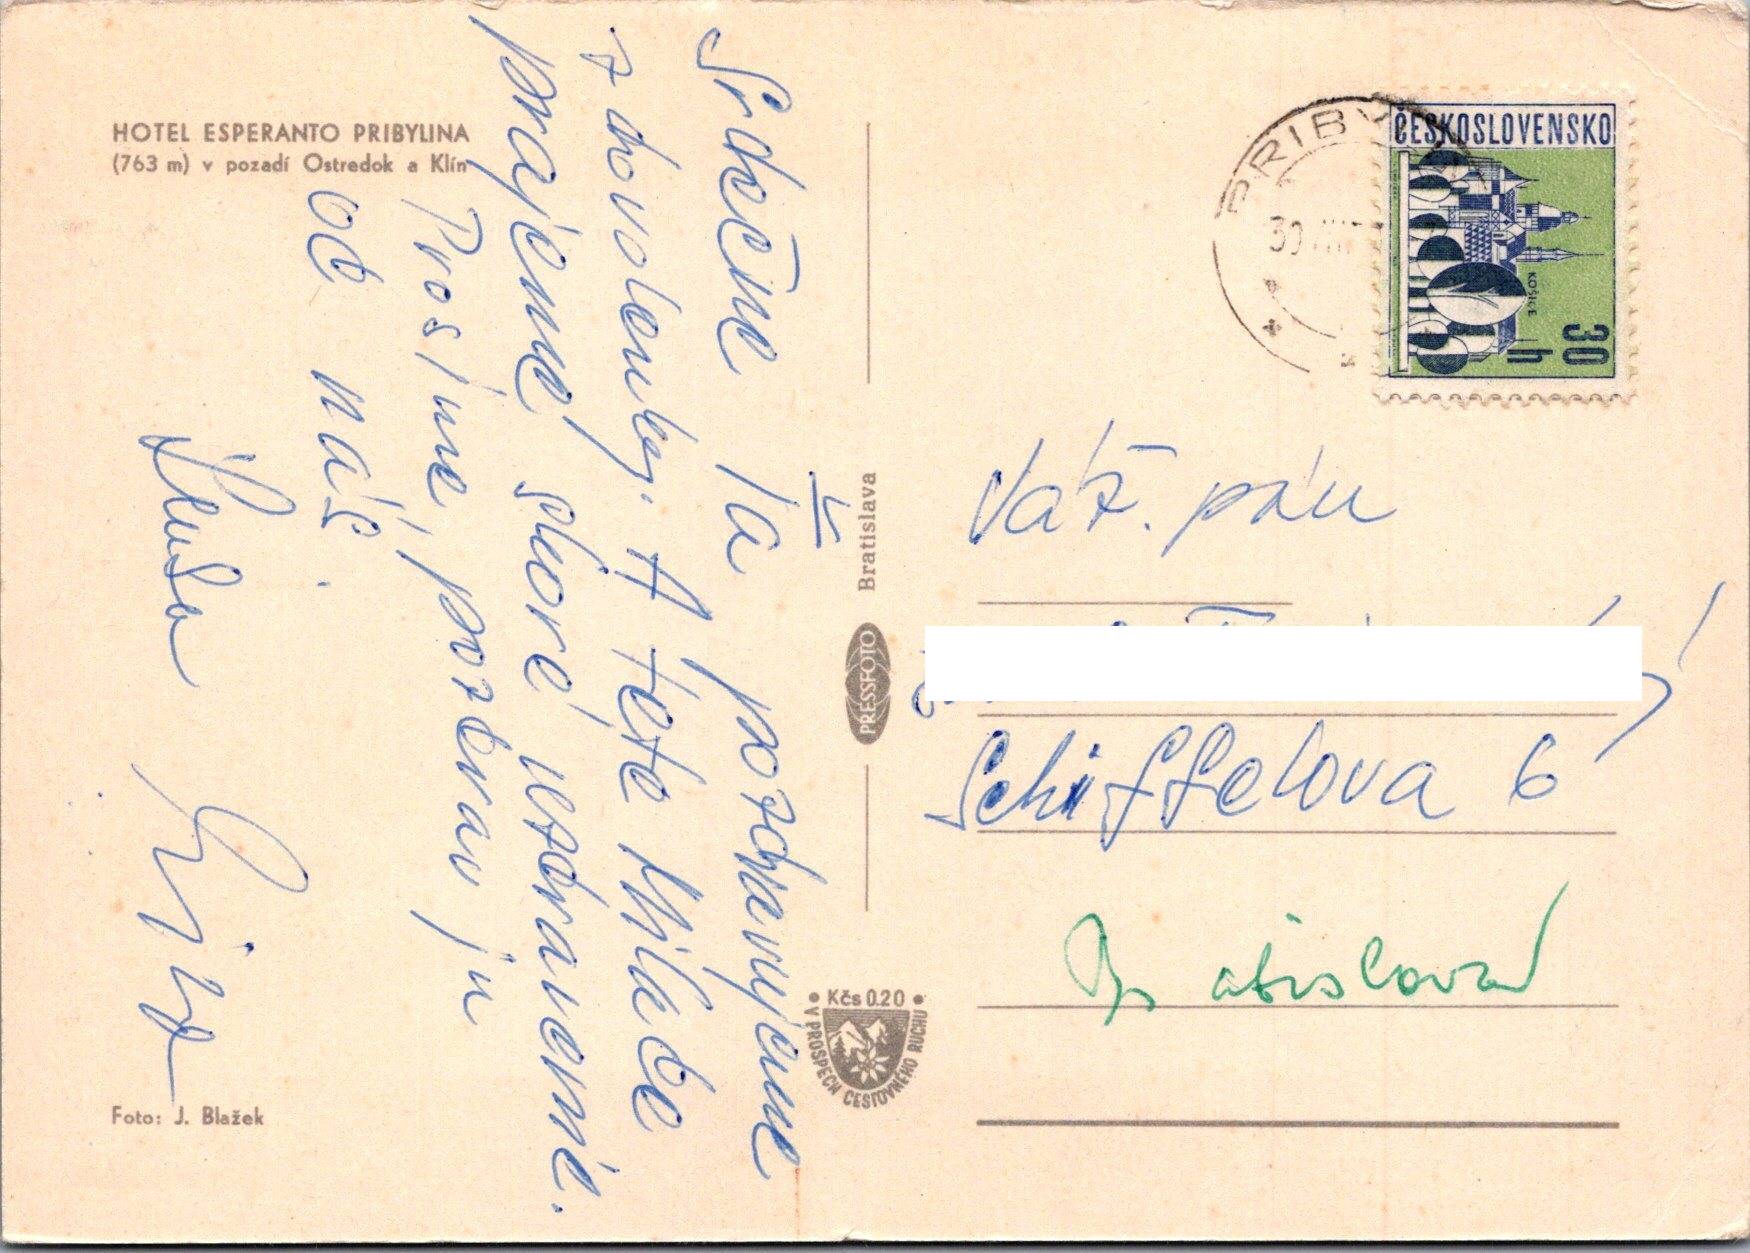 HOTEL ESPERANTO PRIBYLINA
(763 m) v pozadí Ostredok a Klín
Srdečne Ťa pozdravujeme
z dovolenky. A tete Milade
prajeme skoré uzdravenie.
Prosíme, pozdrav ju
od nás.
Foto: J. Blažek
PRESSFOTO Bratislava
Kčs 0.20
V PROSPECH CESTOVNÉHO RUCHU
PRIBY
30
ČESKOSLOVENSKO
KOŠICE
30 h
Váž. pán
Schiffelova 6
Bratislava